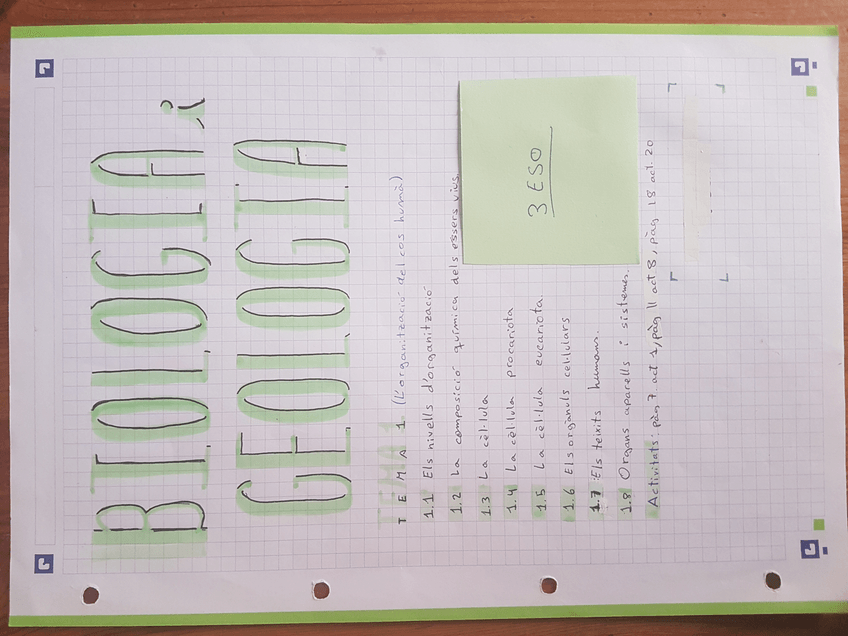 BIOLOGIA i
GEOLOGIA
TEMA 1
TEMA 1 (L'organització del cos humà)
1.1 Els nivells d'organització
1.2 La composició química dels éssers vius
1.3 La cèl·lula
1.4 La cèl·lula procariota
1.5 La cèl·lula eucariota.
1.6 Els orgànuls cel·lulars
1.7 Els teixits humans.
1.8 Organs aparells i sistemes.
Activitats: pàg 7 act 1, pàg 11 act 8, pàg 18 act. 20
3 ESO